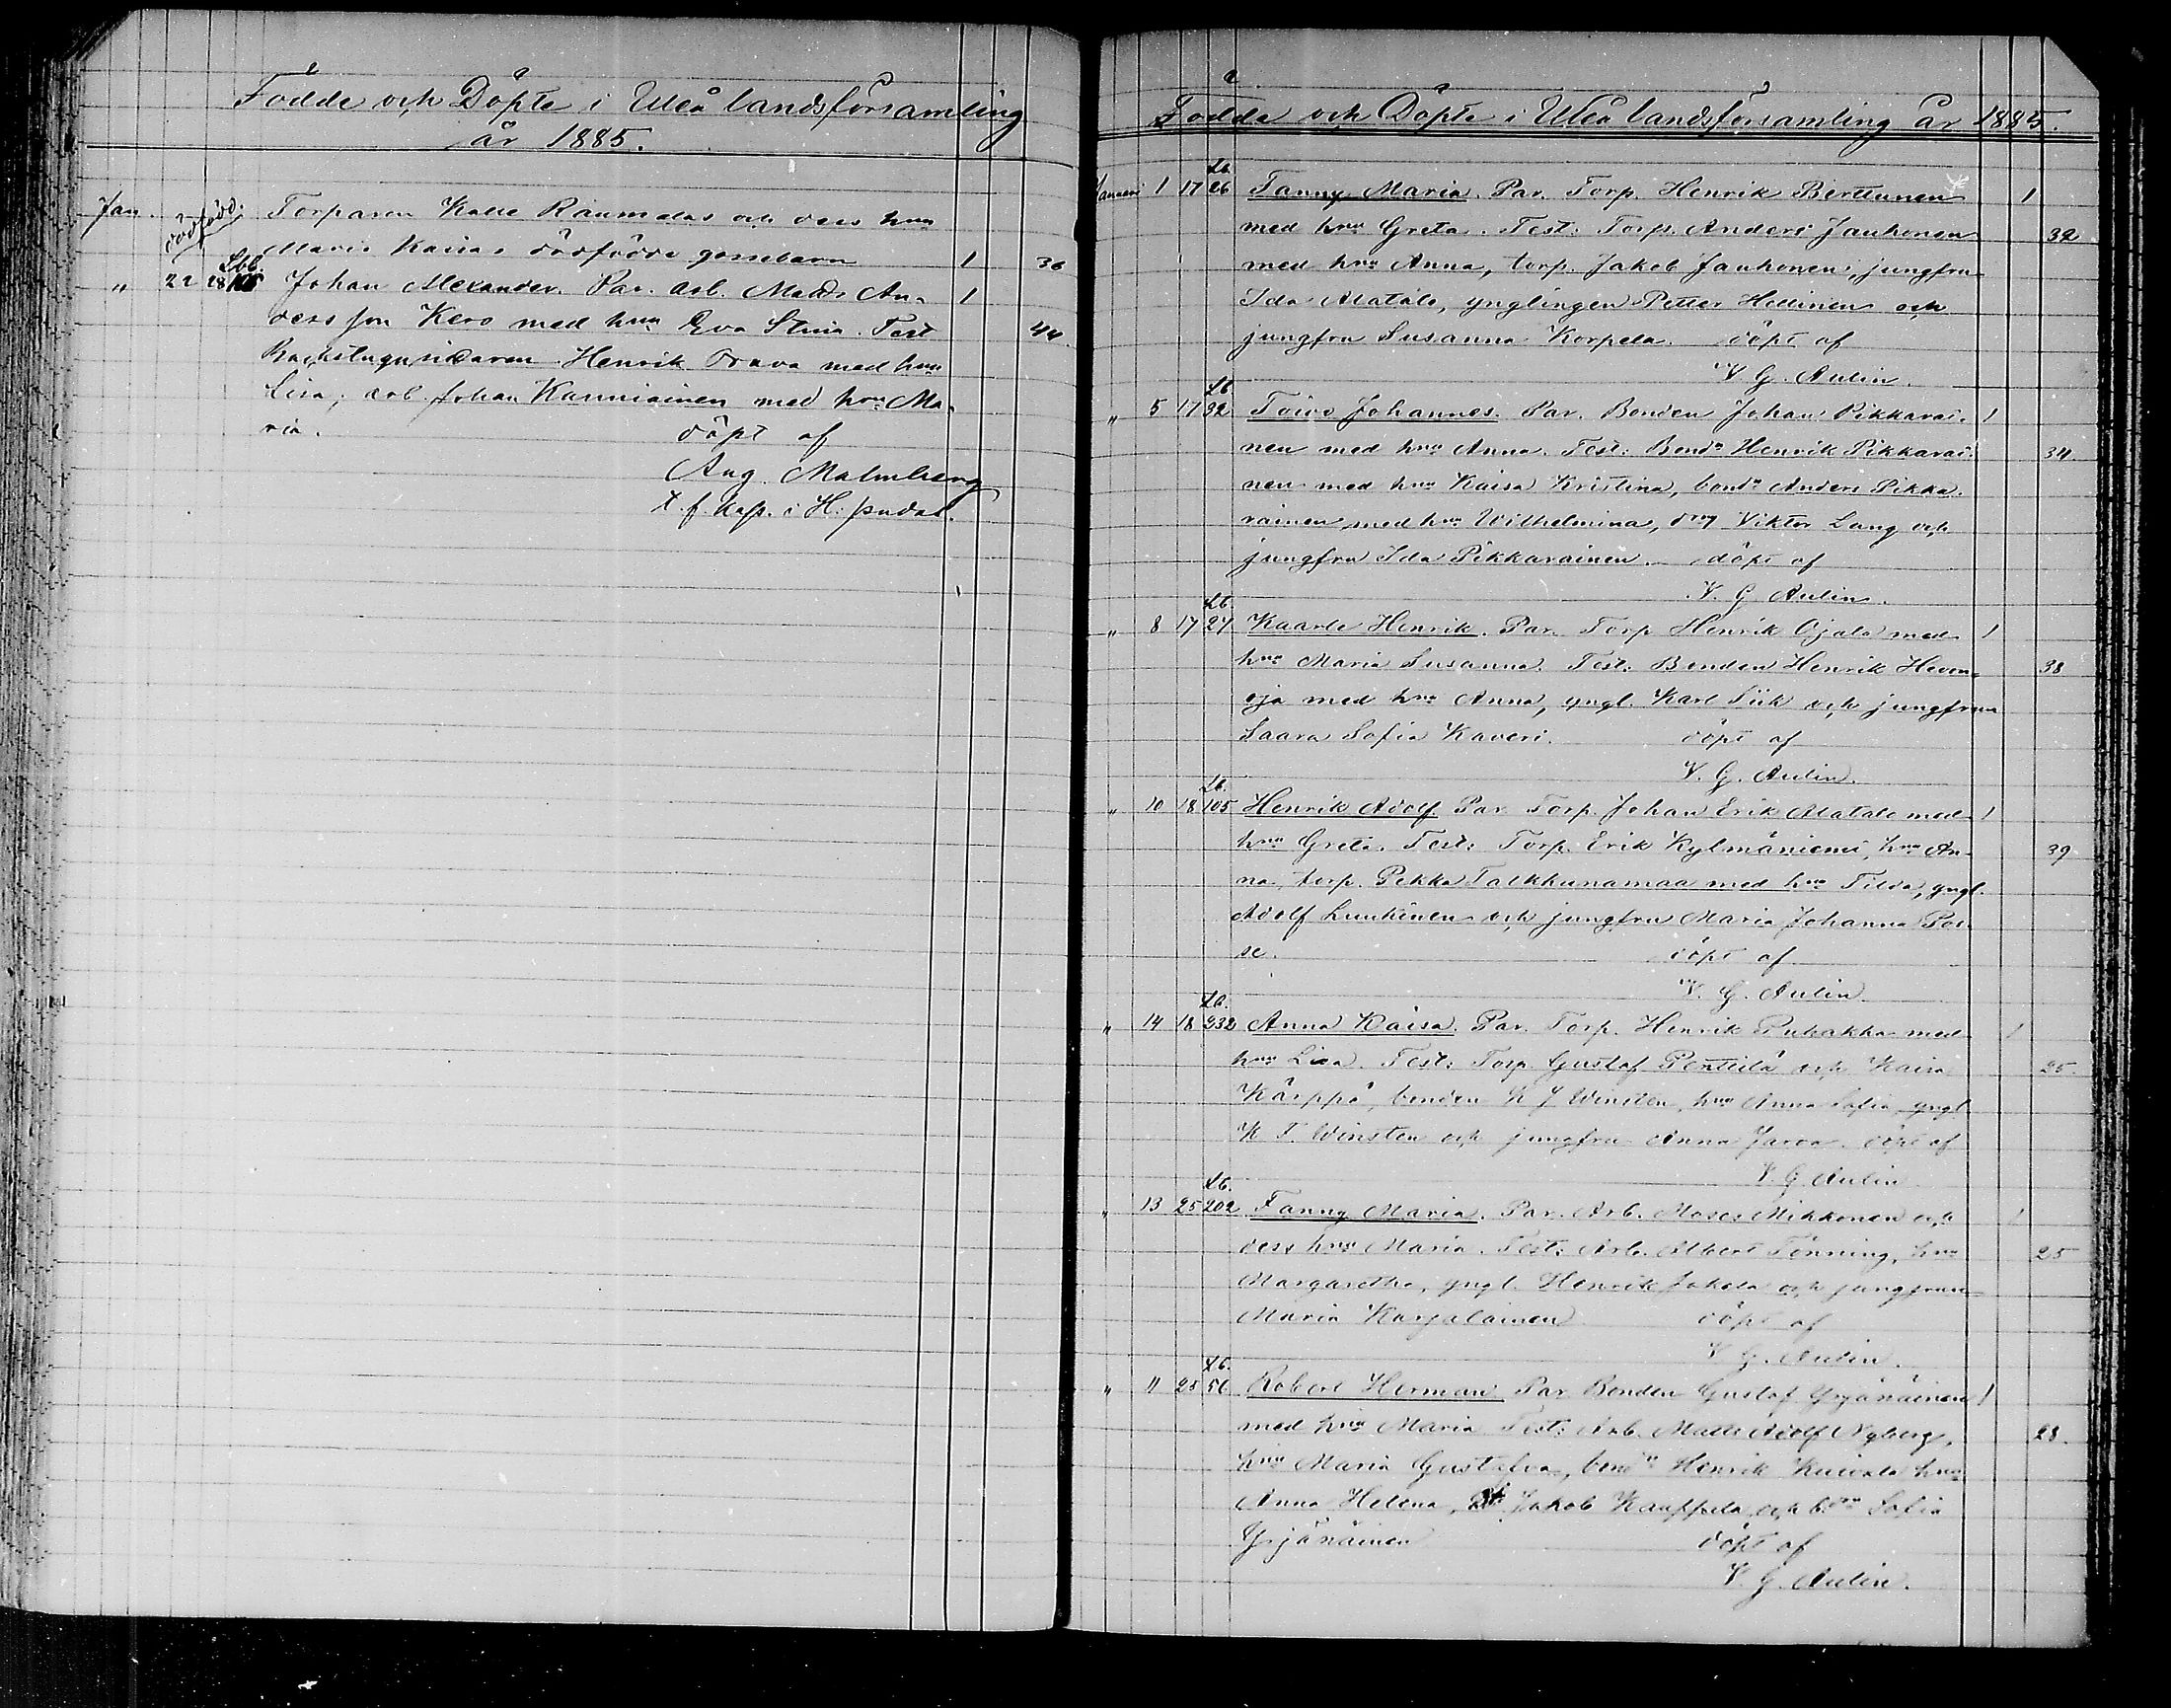 Födde och Döpte i Uleå landsförsamling
år 1885.
Jan. dödfödd. Torparen Kalle Raumala och dess hru
Maria Kaisas dödfödde gossebarn 1 36
" 22 28 Lbb. 105 Johan Alexander. Par. arb. Matts An- 1
dersson Kero med hru Eva Stina. Test 44
Backstugusittaren Henrik Orava med hru
Lisa, arb. Johan Kauniainen med hru Ma-
ria. döpt af
Aug. Malmberg
t. f. kap. i H:pudas.
Födde och Döpte i Uleå landsförsamling år 1885.
Januari 1 17 Lb. 26 Fanny Maria. Par. Torp. Henrik Berttunen 1
med hru Greta. Test: Torp. Anders Jauhonen 32
med hru Anna, torp. Jakob Jauhonen, jungfru
Ida Alatalo, ynglingen Petter Hellinen och
jungfru Susanna Korpela. döpt af
V. G. Aulin.
" 5 17 Lb. 92 Toivo Johannes. Par. Bonden Johan Pikkarai- 1
nen med hru Anna. Test: Bondn Henrik Pikkarai- 34
nen med hru Kaisa Kristina, bondn Anders Pikka-
rainen med hru Wilhelmina, drng Viktor Lang och
jungfru Ida Pikkarainen. döpt af
V. G. Aulin.
" 8 17 Lb. 27 Kaarle Henrik. Par. Torp Henrik Ojala med 1
hru Maria Susanna. Test: Bonden Henrik Hevon- 38
oja med hru Anna, yngl. Karl Siik och jungfrun
Saara Sofia Kaveri. döpt af
V. G. Aulin.
" 10 18 Lb. 105 Henrik Adolf. Par. Torp. Johan Erik Alatalo med 1
hru Greta. Test: Torp. Erik Kylmäniemi, hru An- 39
na, torp. Pekka Talkkunamaa med hru Tilda, yngl.
Adolf Luukinen och jungfru Maria Johanna Por-
se. döpt af
V. G. Aulin.
" 14 18 Lb. 232 Anna Kaisa. Par. Torp. Henrik Puhakka med 1
hru Lisa. Test: Torp. Gustaf Penttilä och Kaisa 25.
Kärppä, bonden K J Winsten, hru Anna Sofia, yngl
K. F. Winsten och jungfru Anna Jarva. döpt af
V. G. Aulin
" 13 25 Lb. 202 Fanny Maria. Par. Arb. Moses Mikkonen och 1
dess hru Maria. Test: Arb. Albert Tenning, hru 25
Margaretha, yngl. Henrik Jokela och jungfrun
Maria Karjalainen döpt af
V. G. Aulin.
" 11 25 Lb. 56 Robert Herman Par. Bonden Gustaf Yrjänäinen 1
med hru Maria Test: Arb. Matts Adolf Nyberg, 28.
hru Maria Gustafva, bondn Henrik Kuivala hru
Anna Helena, Jakob Kauppila och Sofia
Yrjänäinen döpt af
V. G. Aulin.